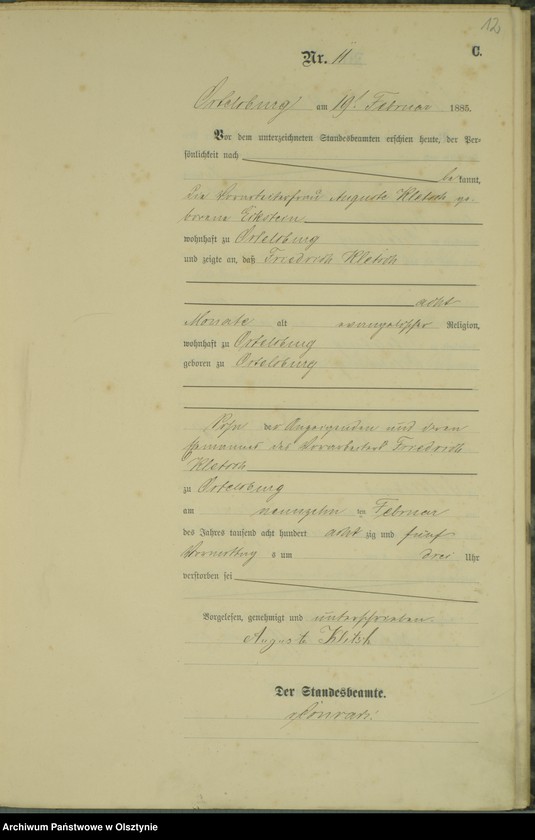 12
Nr. 11
C.
Ortelsburg am 19t Februar 1885.
Vor dem unterzeichneten Standesbeamten erschien heute, der Per-
sönlichkeit nach
bekannt,
die Vorarbeiterfrau Auguste Kletsch ge-
borene Eckstein
wohnhaft zu Ortelsburg
und zeigte an, daß Friedrich Kletsch
acht
Monate alt evangelischer Religion,
wohnhaft zu Ortelsburg
geboren zu Ortelsburg
Sohn der Anzeigenden und deren
Ehemannes des Vorarbeiters Friedrich
Kletsch
zu Ortelsburg
am neunzehn ten Februar
des Jahres tausend acht hundert acht zig und fünf
Vormittags um drei Uhr
verstorben sei
Vorgelesen, genehmigt und unterschrieben
Auguste Kletsch
Der Standesbeamte.
Archiwum Państwowe w Olsztynie